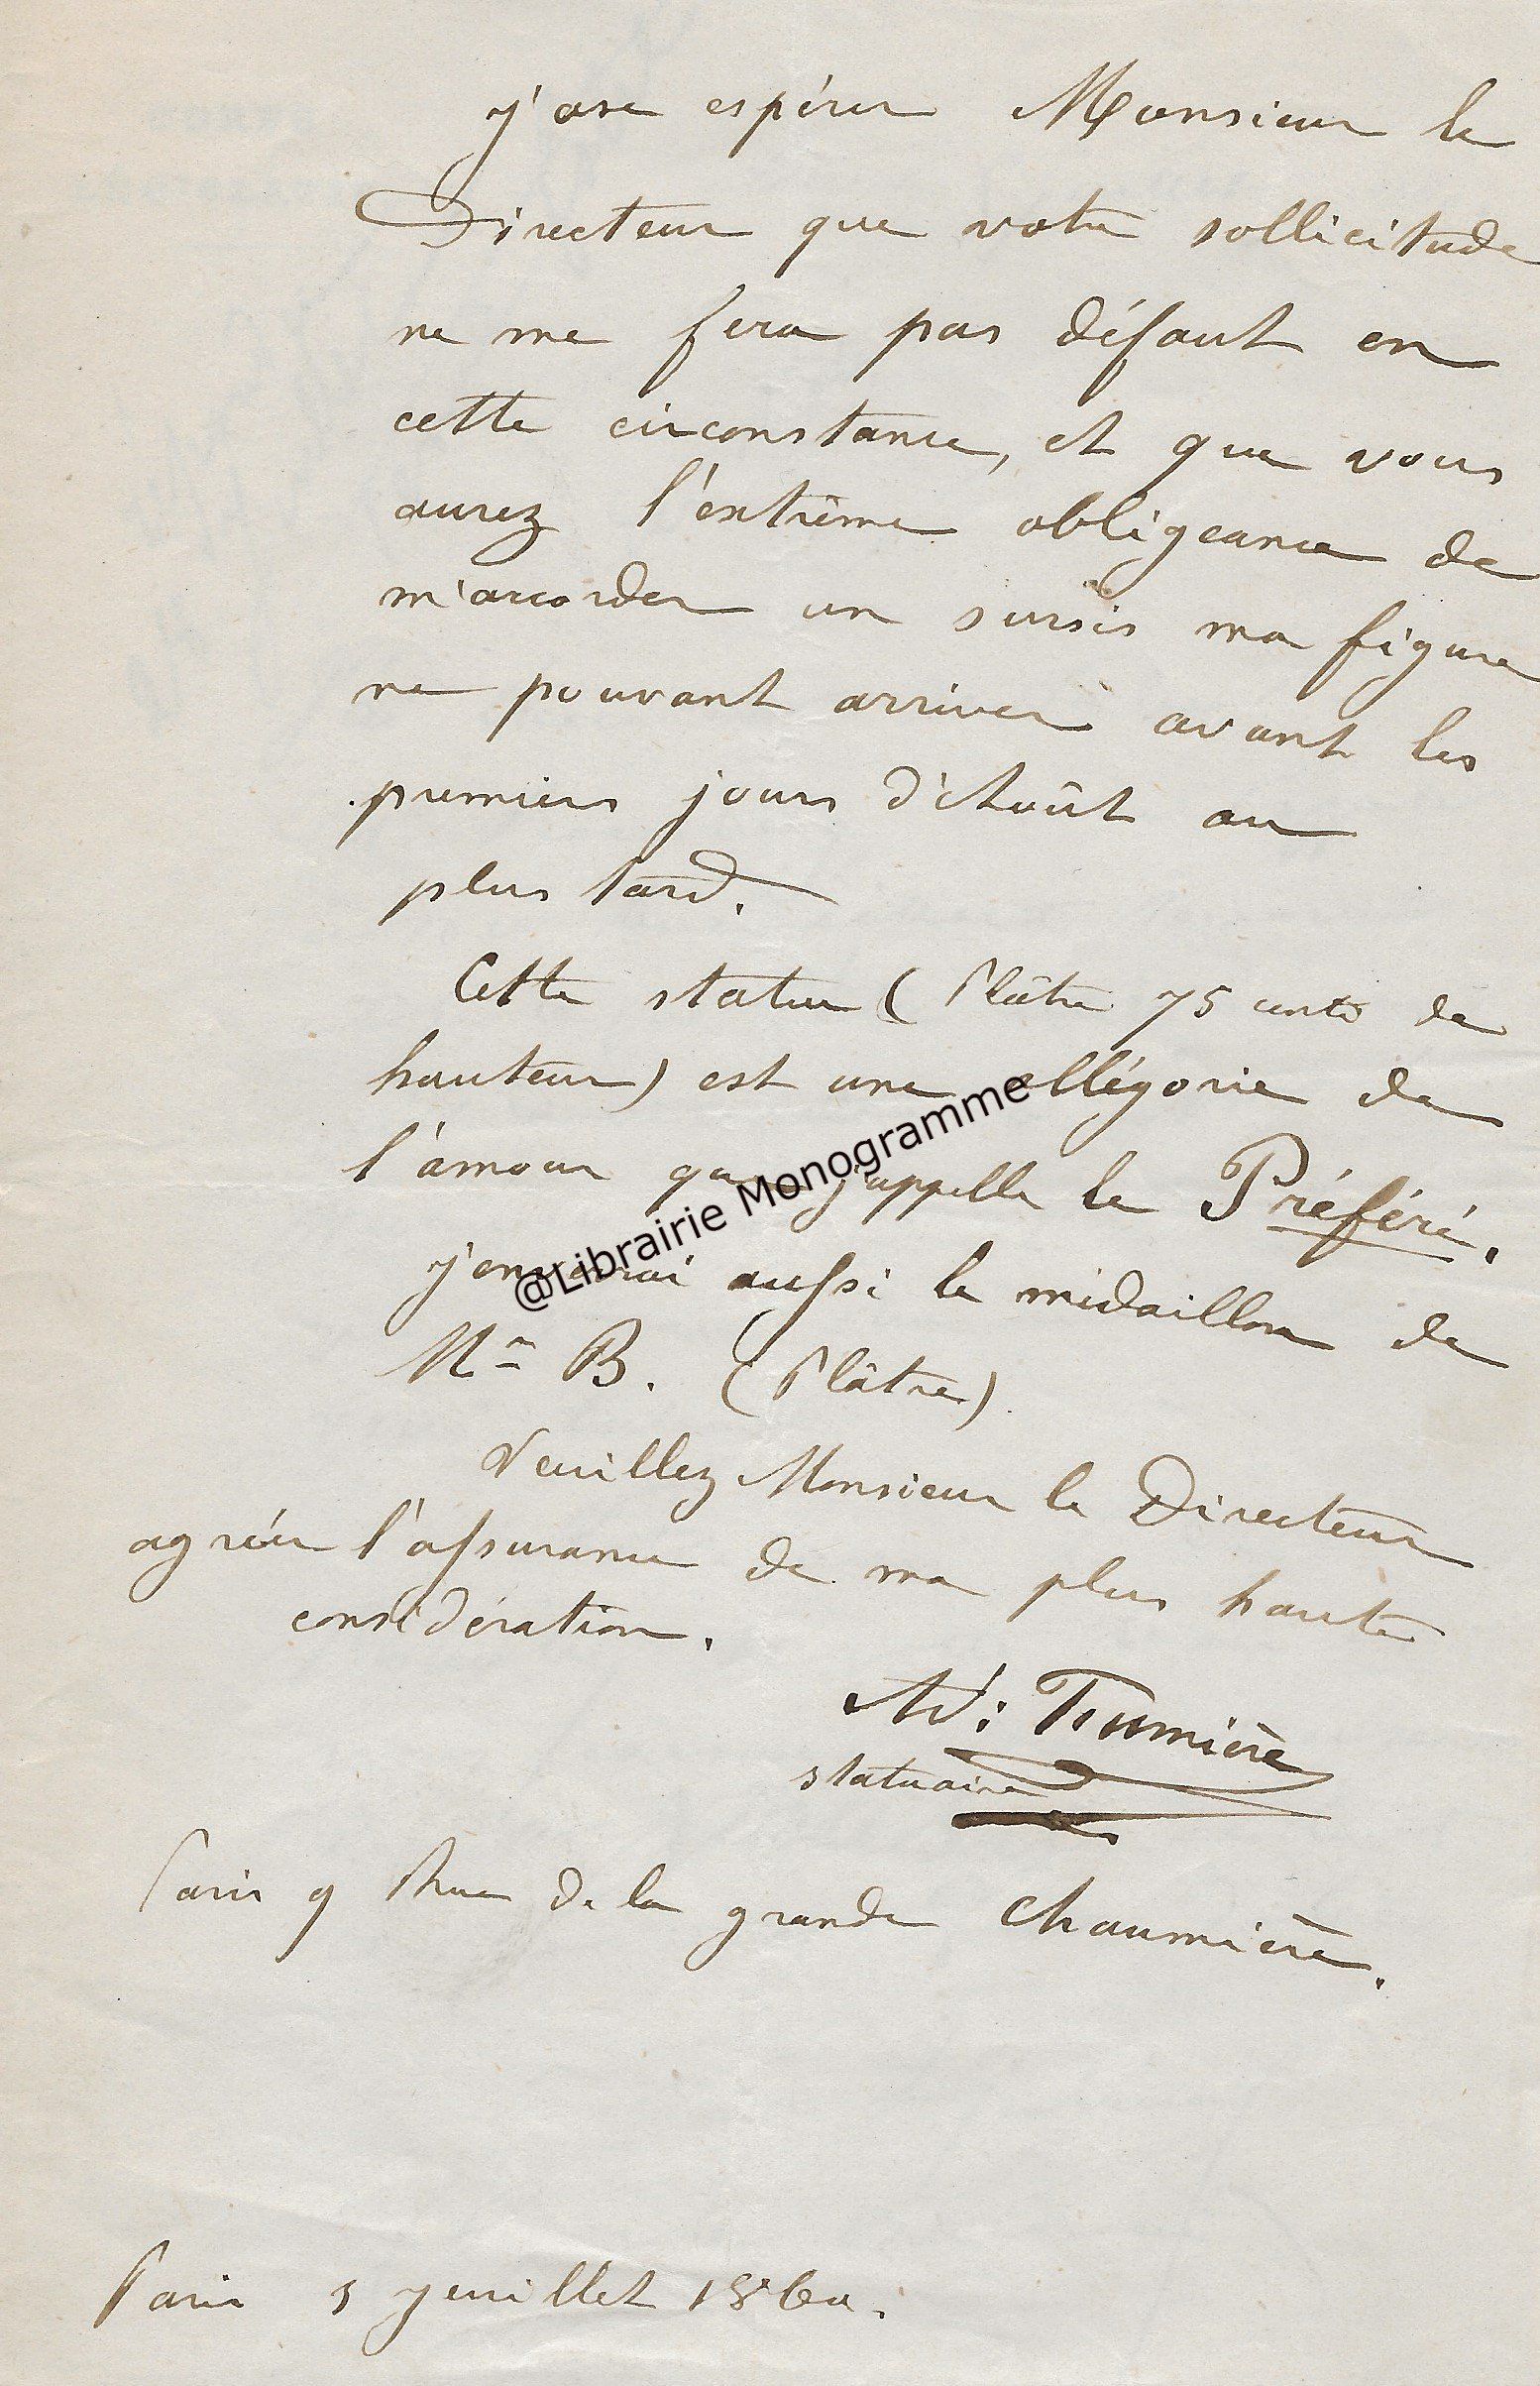 j'ose espérer Monsieur le
Directeur que votre sollicitude
ne me fera pas défaut en
cette circonstance, et que vous
aurez l'extrême obligeance de
m'accorder un sursis ma figure
ne pouvant arriver avant les
premiers jours d'Août au
plus tard.
Cette statue (Plâtre 75 cents de
hauteur) est une allégorie de
l'amour que j'appelle le Préféré.
@Librairie Monogramme
j'enverrai aussi le médaillon de
Mme B. (Plâtre).
Veuillez Monsieur le Directeur
agréer l'assurance de ma plus haute
considération.
Ad:
statuaire
Paris 9 Rue de la grande Chaumière.
Paris 5 jeuillet 1860.